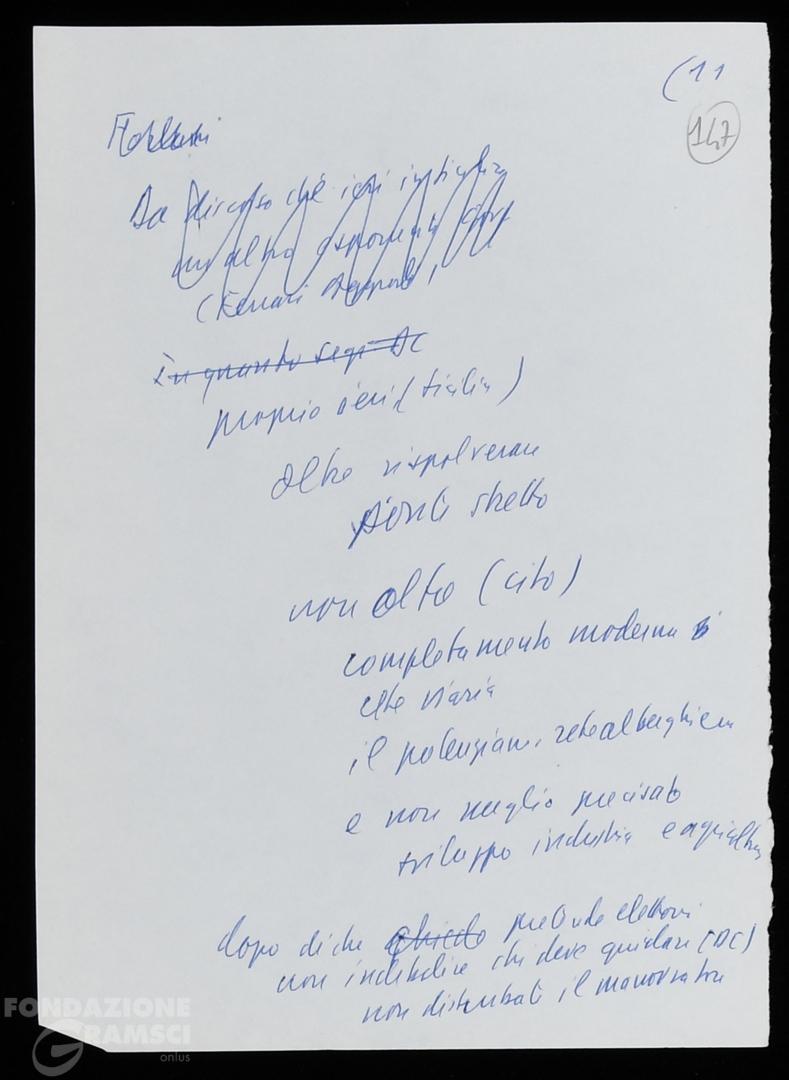 (11
147
Forlani
Da discorso che ieri in Sicilia
un altro esponente
(Ferrari Aggradi)
In quanto segr DC
proprio ieri (Sicilia)
oltre rispolverare
ponte stretto
non altro (cito)
completamento moderna
rete viaria
il potenziam. rete alberghiera
e non meglio precisato
sviluppo industria e agricoltura
dopo di che chiede pretende elettori
non indebolire chi deve guidare (DC)
non disturbate il manovratore
FONDAZIONE
GRAMSCI
onlus